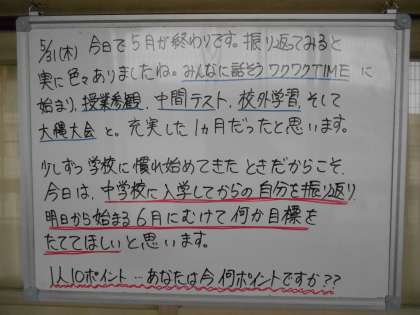 5/31(木) 今日で5月が終わりです。振り返ってみると
実に色々ありましたね。みんなに話そうワクワクTIMEに
始まり、授業参観、中間テスト、校外学習、そして
大縄大会と。充実した1ヵ月だったと思います。
少しずつ学校に慣れ始めてきたときだからこそ、
今日は、中学校に入学してからの自分を振り返り、
明日から始まる6月にむけて何か目標を
たててほしいと思います。
1人10ポイント…あなたは今何ポイントですか??